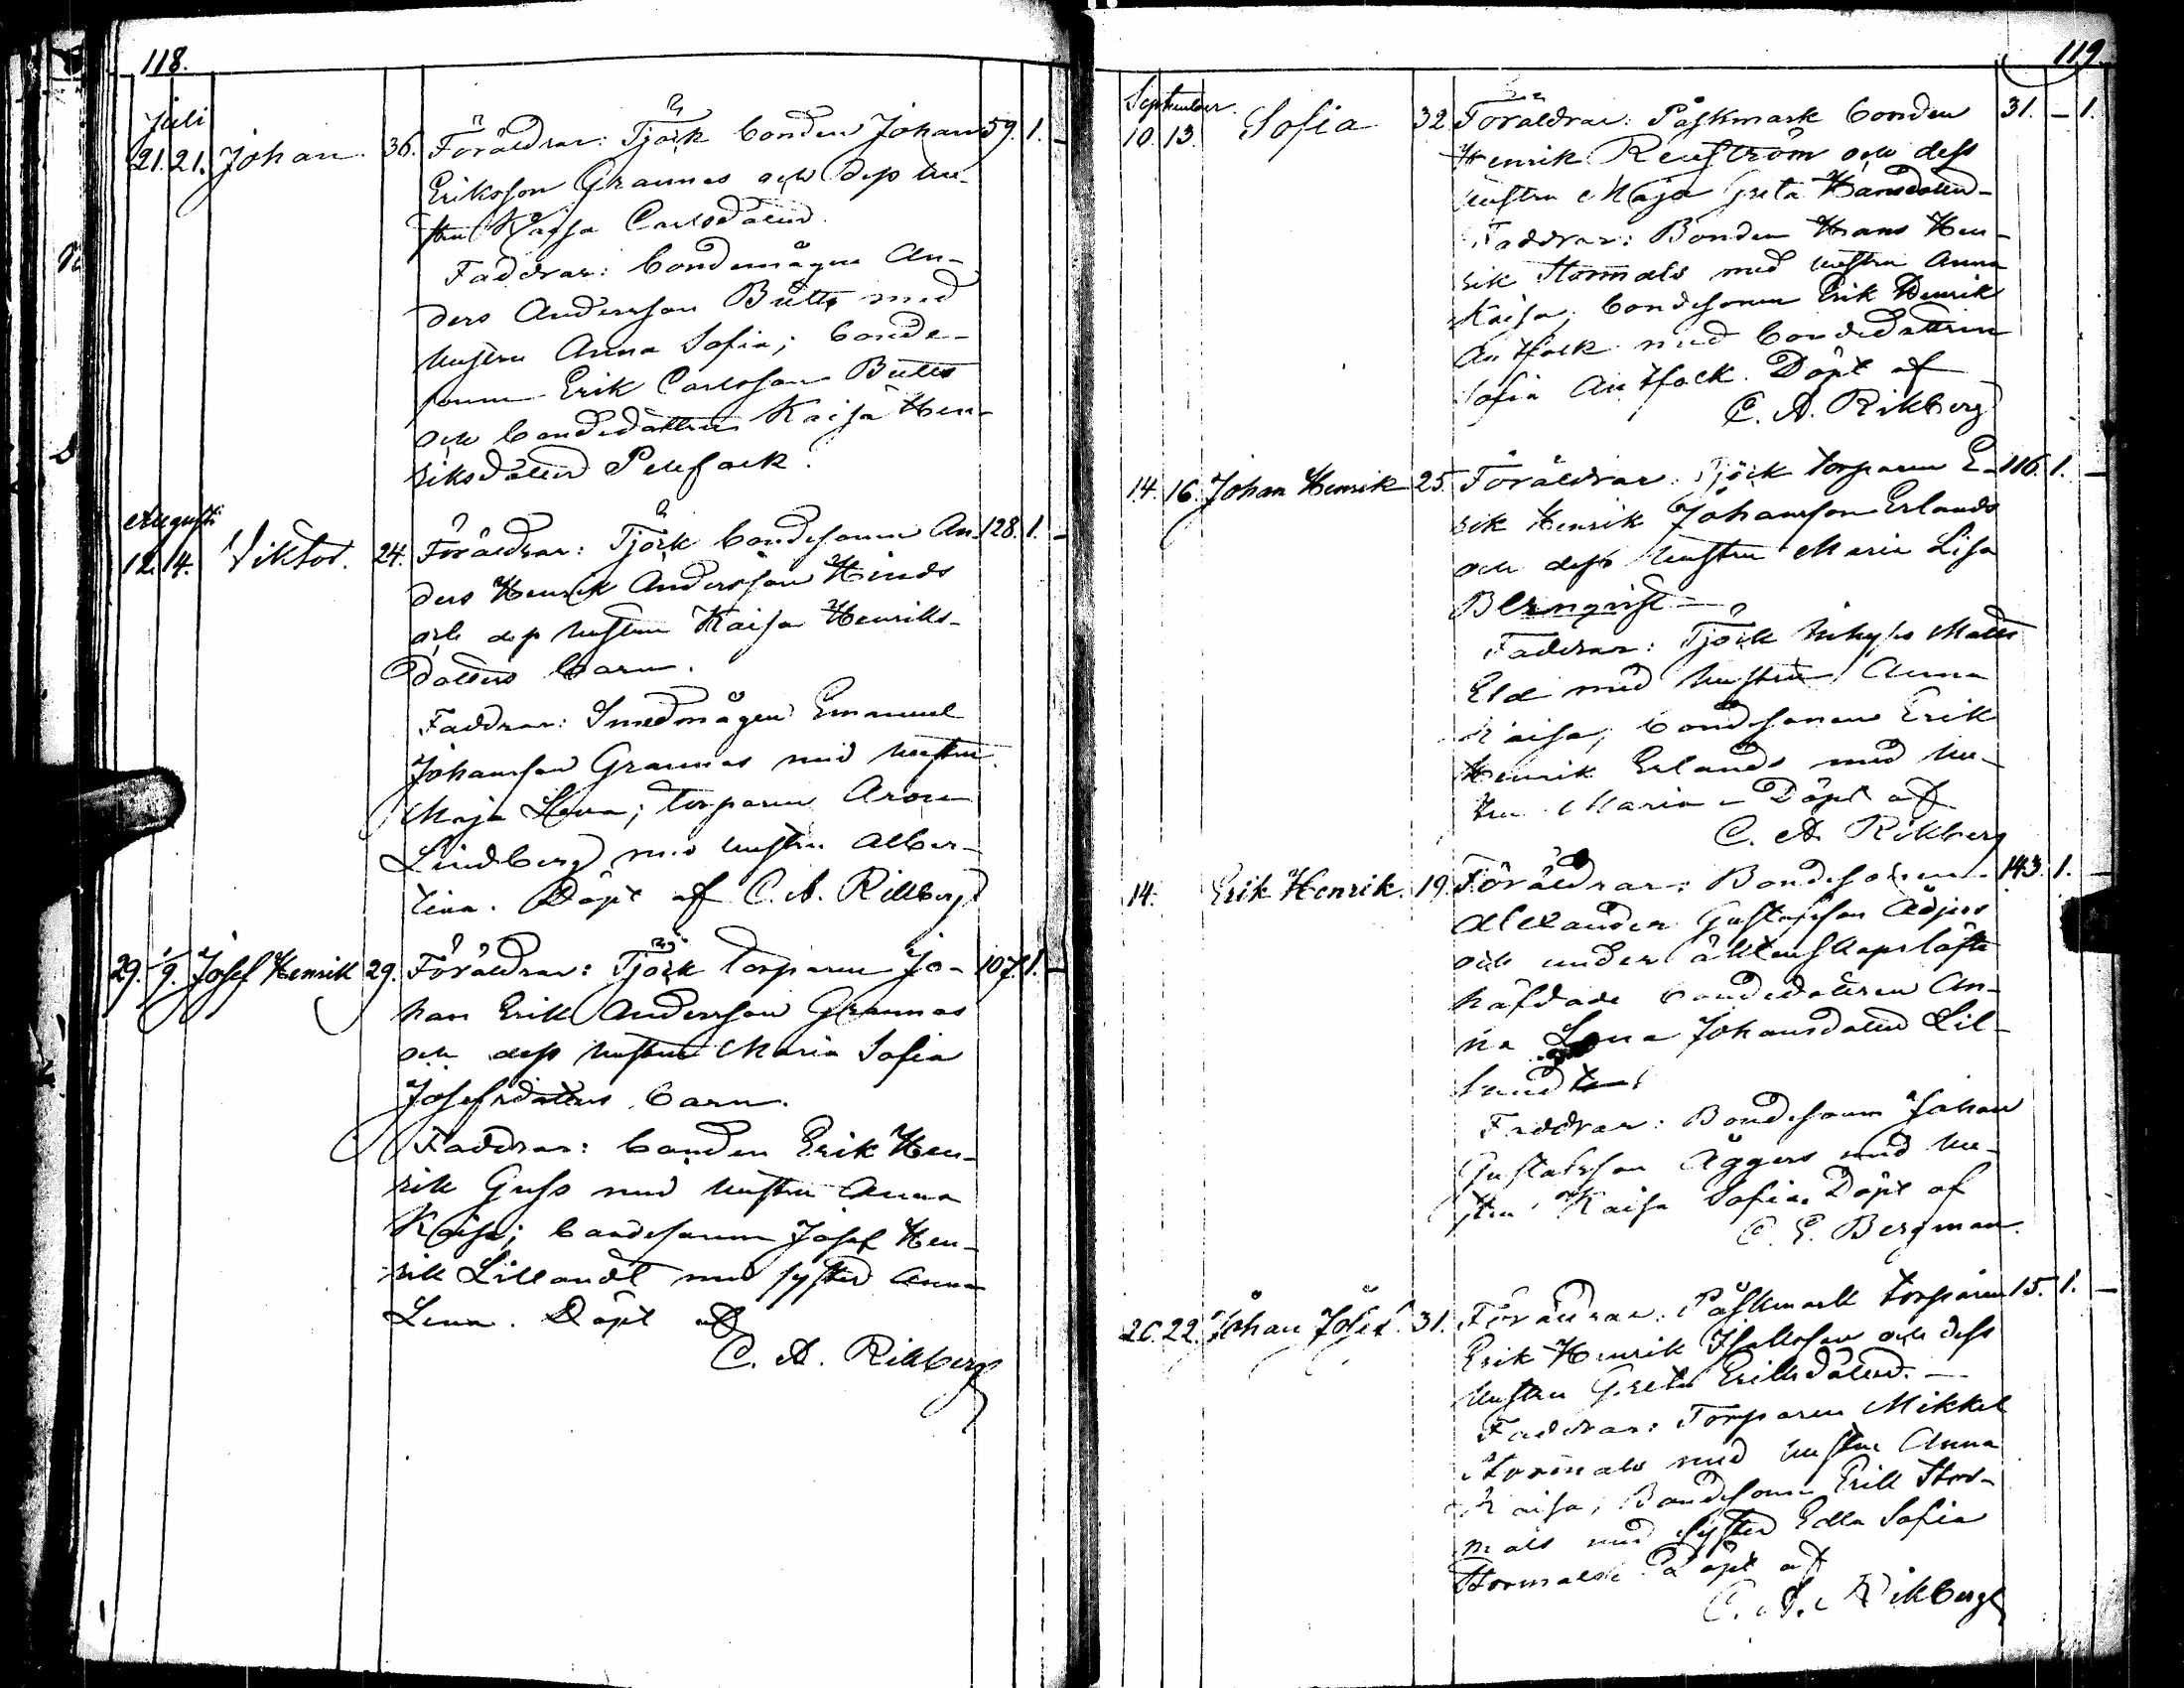 118.
Juli
21. 21. Johan. 36. Föräldrar: Tjöck bonden Johan 59. 1. -
Eriksson Grannas och dess hu-
stru Kaisa Carlsdotter.
Faddrar: bondemågen An-
ders Andersson Bülts med
hustru Anna Sofia; bonde-
sonen Erik Carlsson Bülts
och bondedottren Kaisa Hen-
riksdotter Pellfolk.
Augusti
12. 14. Viktor. 24. Föräldrar: Tjöck bondesonen An- 128. 1. -
ders Henrik Andersson Hinds
och dess hustru Kaisa Henriks-
dotters barn.
Faddrar: Smedmågen Emanuel
Johansson Grannas med hustru
Maja Lena; torparen Aron
Lindberg med hustru Alber-
tina. Döpt af C. A. Rikberg
29. 1/9. Josef Henrik 29. Föräldrar: Tjöck torparen Jo- 107. 1. -
han Erik Andersson Grannas
och dess hustru Maria Sofia
Josefsdotters barn.
Faddrar: bonden Erik Hen-
rik Guss med hustru Anna
Kaisa; bondesonen Josef Hen-
rik Lillandt med syster Anna
Lena. Döpt af
C. A. Rikberg
119.
September.
10. 13. Sofia 32 Föräldrar: Påskmark bonden 31. - 1.
Henrik Renström och dess
hustru Maja Greta Hansdotter-
Faddrar: Bonden Hans Hen-
rik Stormåls med hustru Anna
Kaisa; bondesonen Erik Henrik
Antfolk med bondedottren
Sofia Antfolk. Döpt af
C. A. Rikberg
14. 16. Johan Henrik 25. Föräldrar: Tjöck torparen E- 116. 1. -
rik Henrik Johansson Erlands
och dess hustru Maria Lisa
Blemqvist -
Faddrar: Tjöck Matts
Eld med hustru Anna
Kaisa; bondesonen Erik
Henrik Erlands med hu-
stru Maria - Döpt af
C. A. Rikberg
14. Erik Henrik. 19. Föräldrar: Bondesonen 143. 1. -
Alexander Gustafsson
och under äktenskapslöfte
häfdade bondedottren An-
na Lena Johansdotter Lil-
Faddrar: Bondesonen Johan
Gustafsson Äggers med hu-
stru Kaisa Sofia. Döpt af
C. E. Bergman.
20. 22. Johan Josef. 31. Föräldrar: Påskmark torparen 15. 1. -
Erik Henrik och dess
hustru Greta Eriksdotter. -
Faddrar: Torparen Mikkel
Stormåls med hustru Anna
Kaisa; Bondesonen Erik Stor-
måls med syster Edla Sofia
Stormåls. Döpt af
C. A. Rikberg